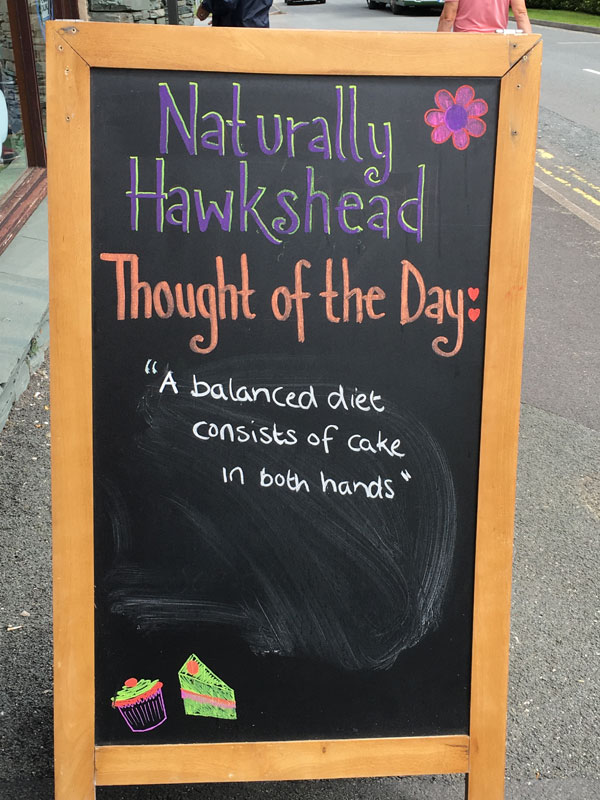 Naturally
Hawkshead
Thought of the Day:
"A balanced diet
consists of cake
in both hands"